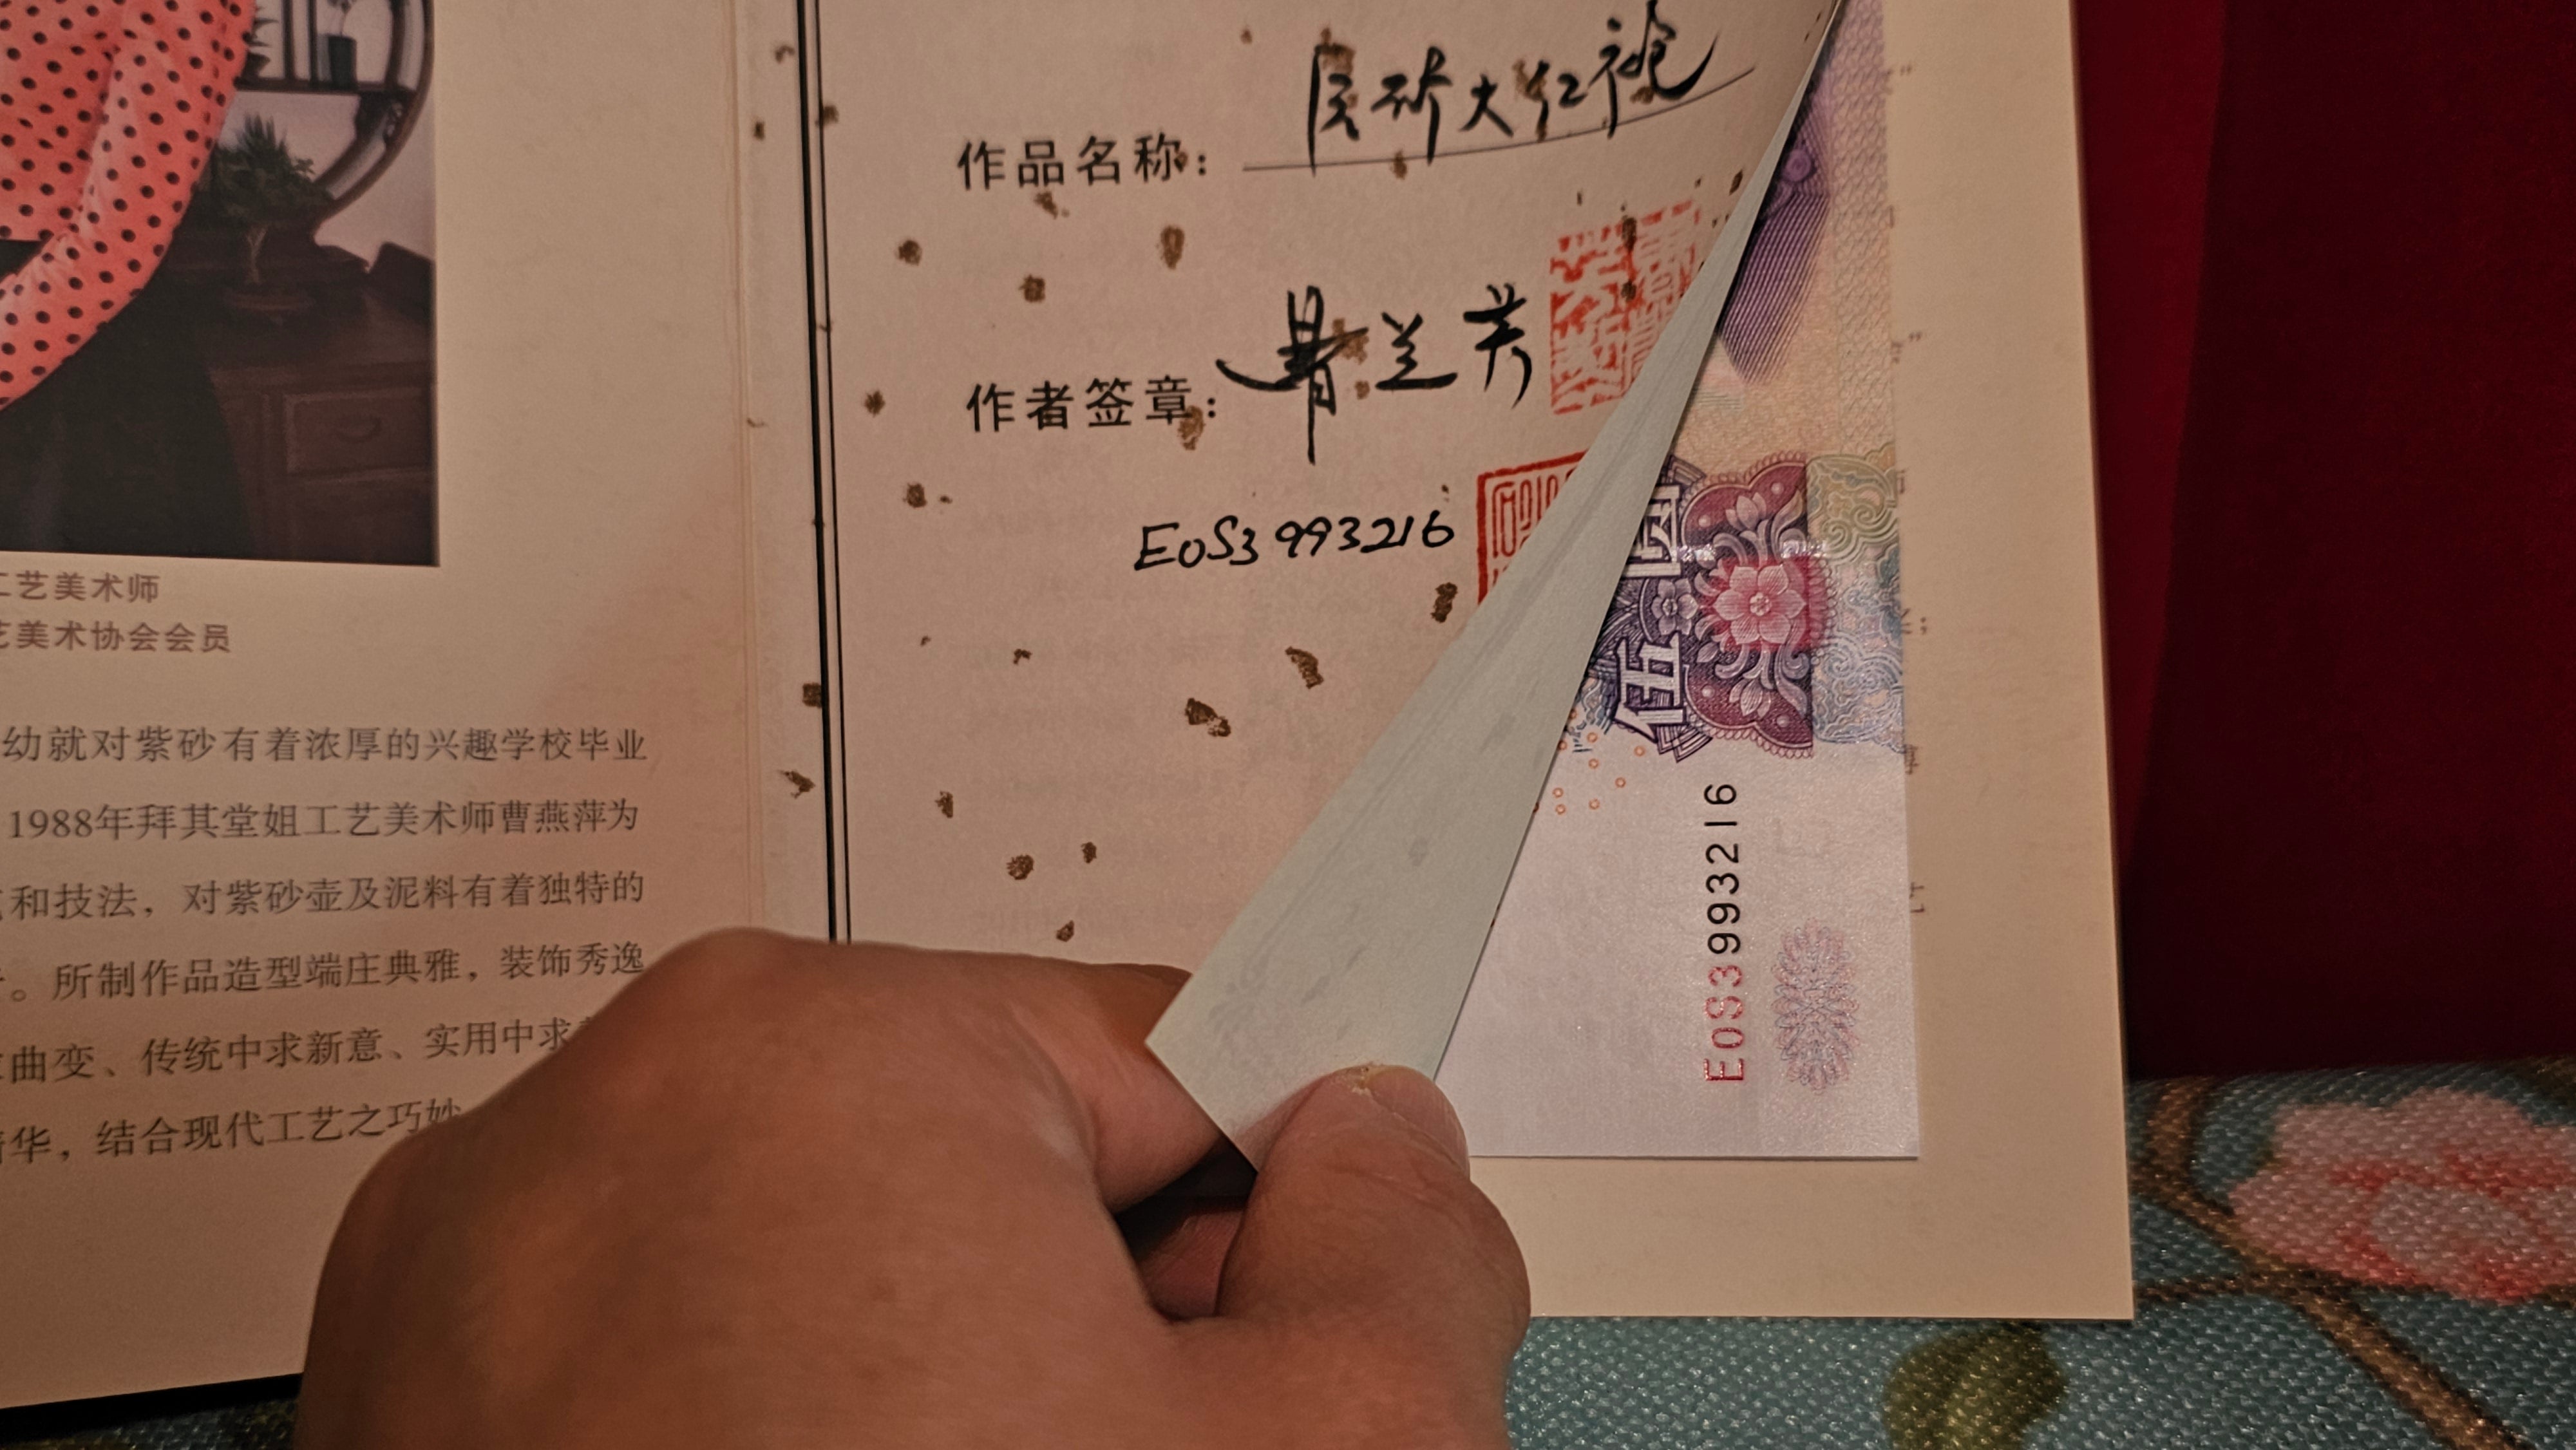 作品名称：
大红袍
作者签章：
曹兰芳
EOS3993216
工艺美术师
艺美术协会会员
幼就对紫砂有着浓厚的兴趣学校毕业
1988年拜其堂姐工艺美术师曹燕萍为
和技法，对紫砂壶及泥料有着独特的
。所制作品造型端庄典雅，装饰秀逸
曲变、传统中求新意、实用中求
华，结合现代工艺之巧妙
伍圆
EOS3993216